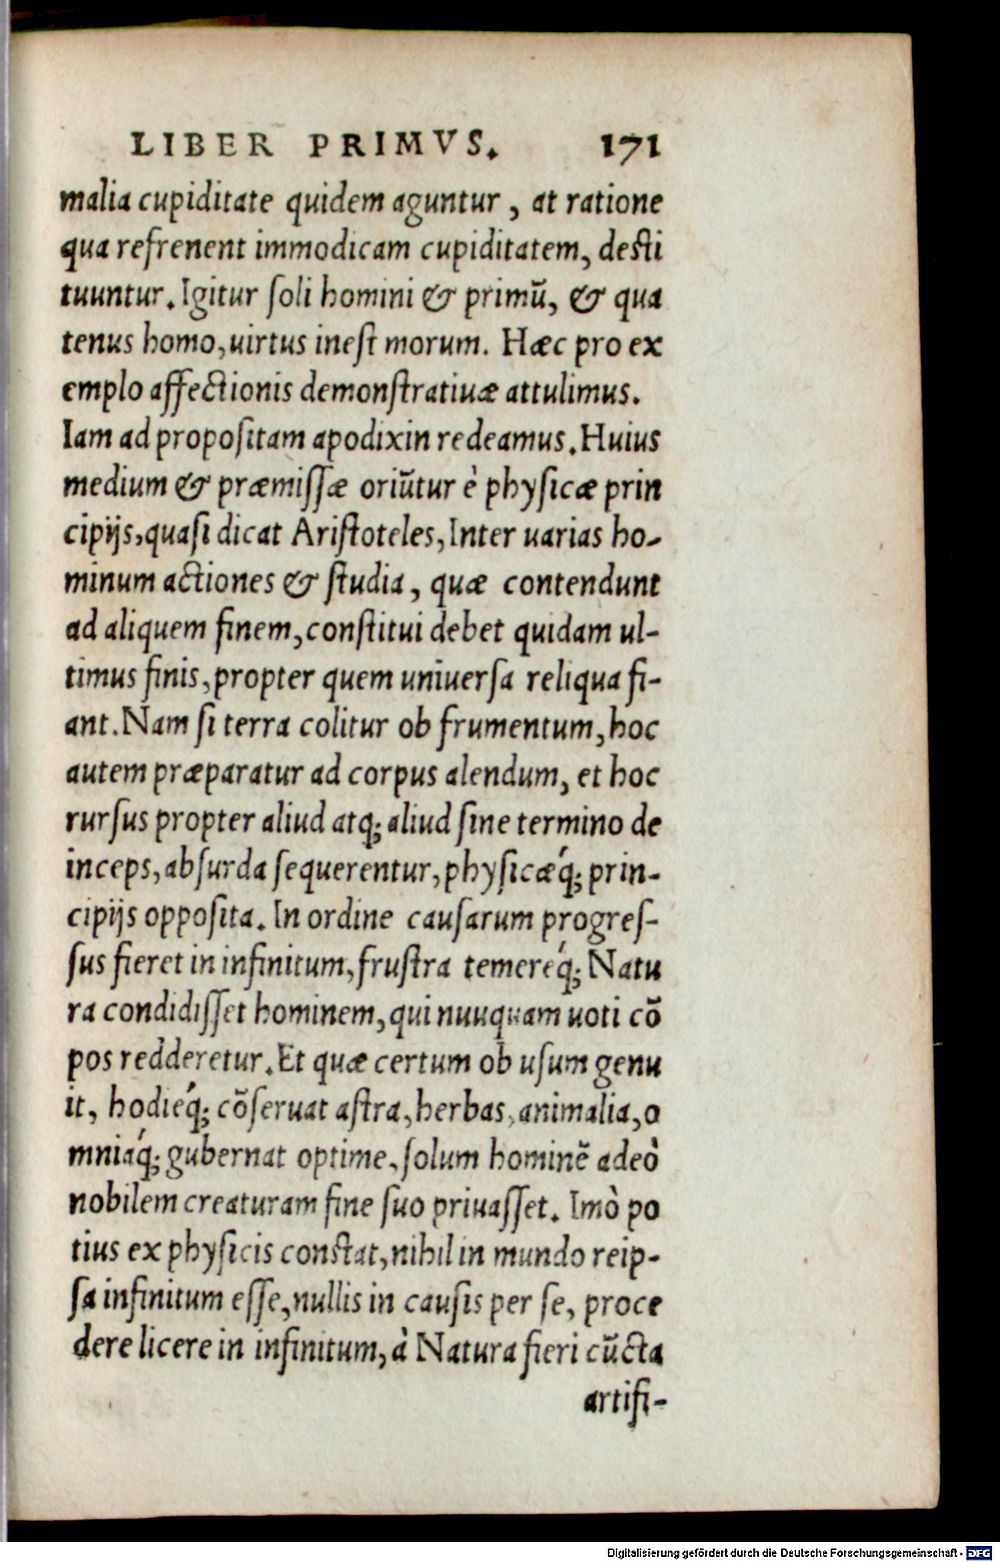 LIBER PRIMVS. 171
malia cupiditate quidem aguntur, at ratione
qua refrenent immodicam cupiditatem, desti
tuuntur. Igitur soli homini & primũ, & qua
tenus homo, uirtus inest morum. Hæc pro ex
emplo affectionis demonstratiuæ attulimus.
Iam ad propositam apodixin redeamus. Huius
medium & præmissæ oriũtur è physicæ prin
cipijs, quasi dicat Aristoteles, Inter uarias ho-
minum actiones & studia, quæ contendunt
ad aliquem finem, constitui debet quidam ul-
timus finis, propter quem uniuersa reliqua fi-
ant. Nam si terra colitur ob frumentum, hoc
autem præparatur ad corpus alendum, et hoc
rursus propter aliud atq; aliud sine termino de
inceps, absurda sequerentur, physicæq́; prin-
cipijs opposita. In ordine causarum progres-
sus fieret in infinitum, frustra temereq́; Natu
ra condidisset hominem, qui nuuquam uoti cõ
pos redderetur. Et quæ certum ob usum genu
it, hodieq́; cõseruat astra, herbas, animalia, o
mniaq́; gubernat optime, solum hominẽ adeò
nobilem creaturam fine suo priuasset. Imò po
tius ex physicis constat, nihil in mundo reip-
sa infinitum esse, nullis in causis per se, proce
dere licere in infinitum, à Natura fieri cũcta
artifi-
Digitalisierung gefördert durch die Deutsche Forschungsgemeinschaft - DFG